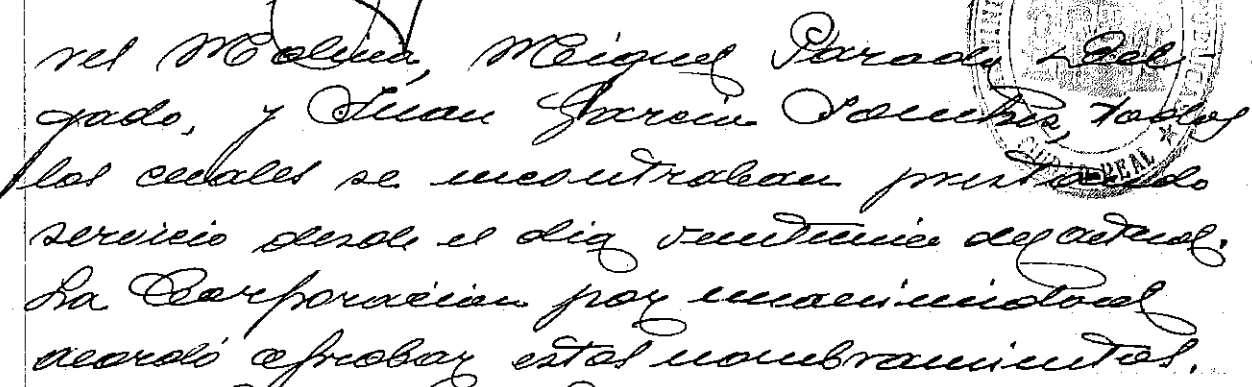 nel Molina, Miguel Parado Del-
gado, y Juan Garcia Sanchez, todos
los cuales se encontraban prestando
servicio desde el dia veintiunio del actual.
La Corporacion por unanimidad
acordó aprobar estos nombramientos.
CIUDAD-REAL